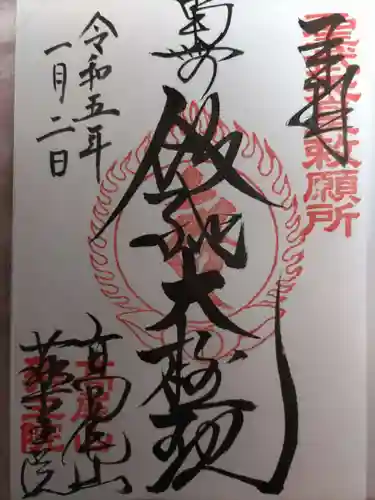 奉拝
聖武天皇勅願所
飯縄大権現
令和五年
一月二日
高尾山
薬王院
高尾山
薬王院